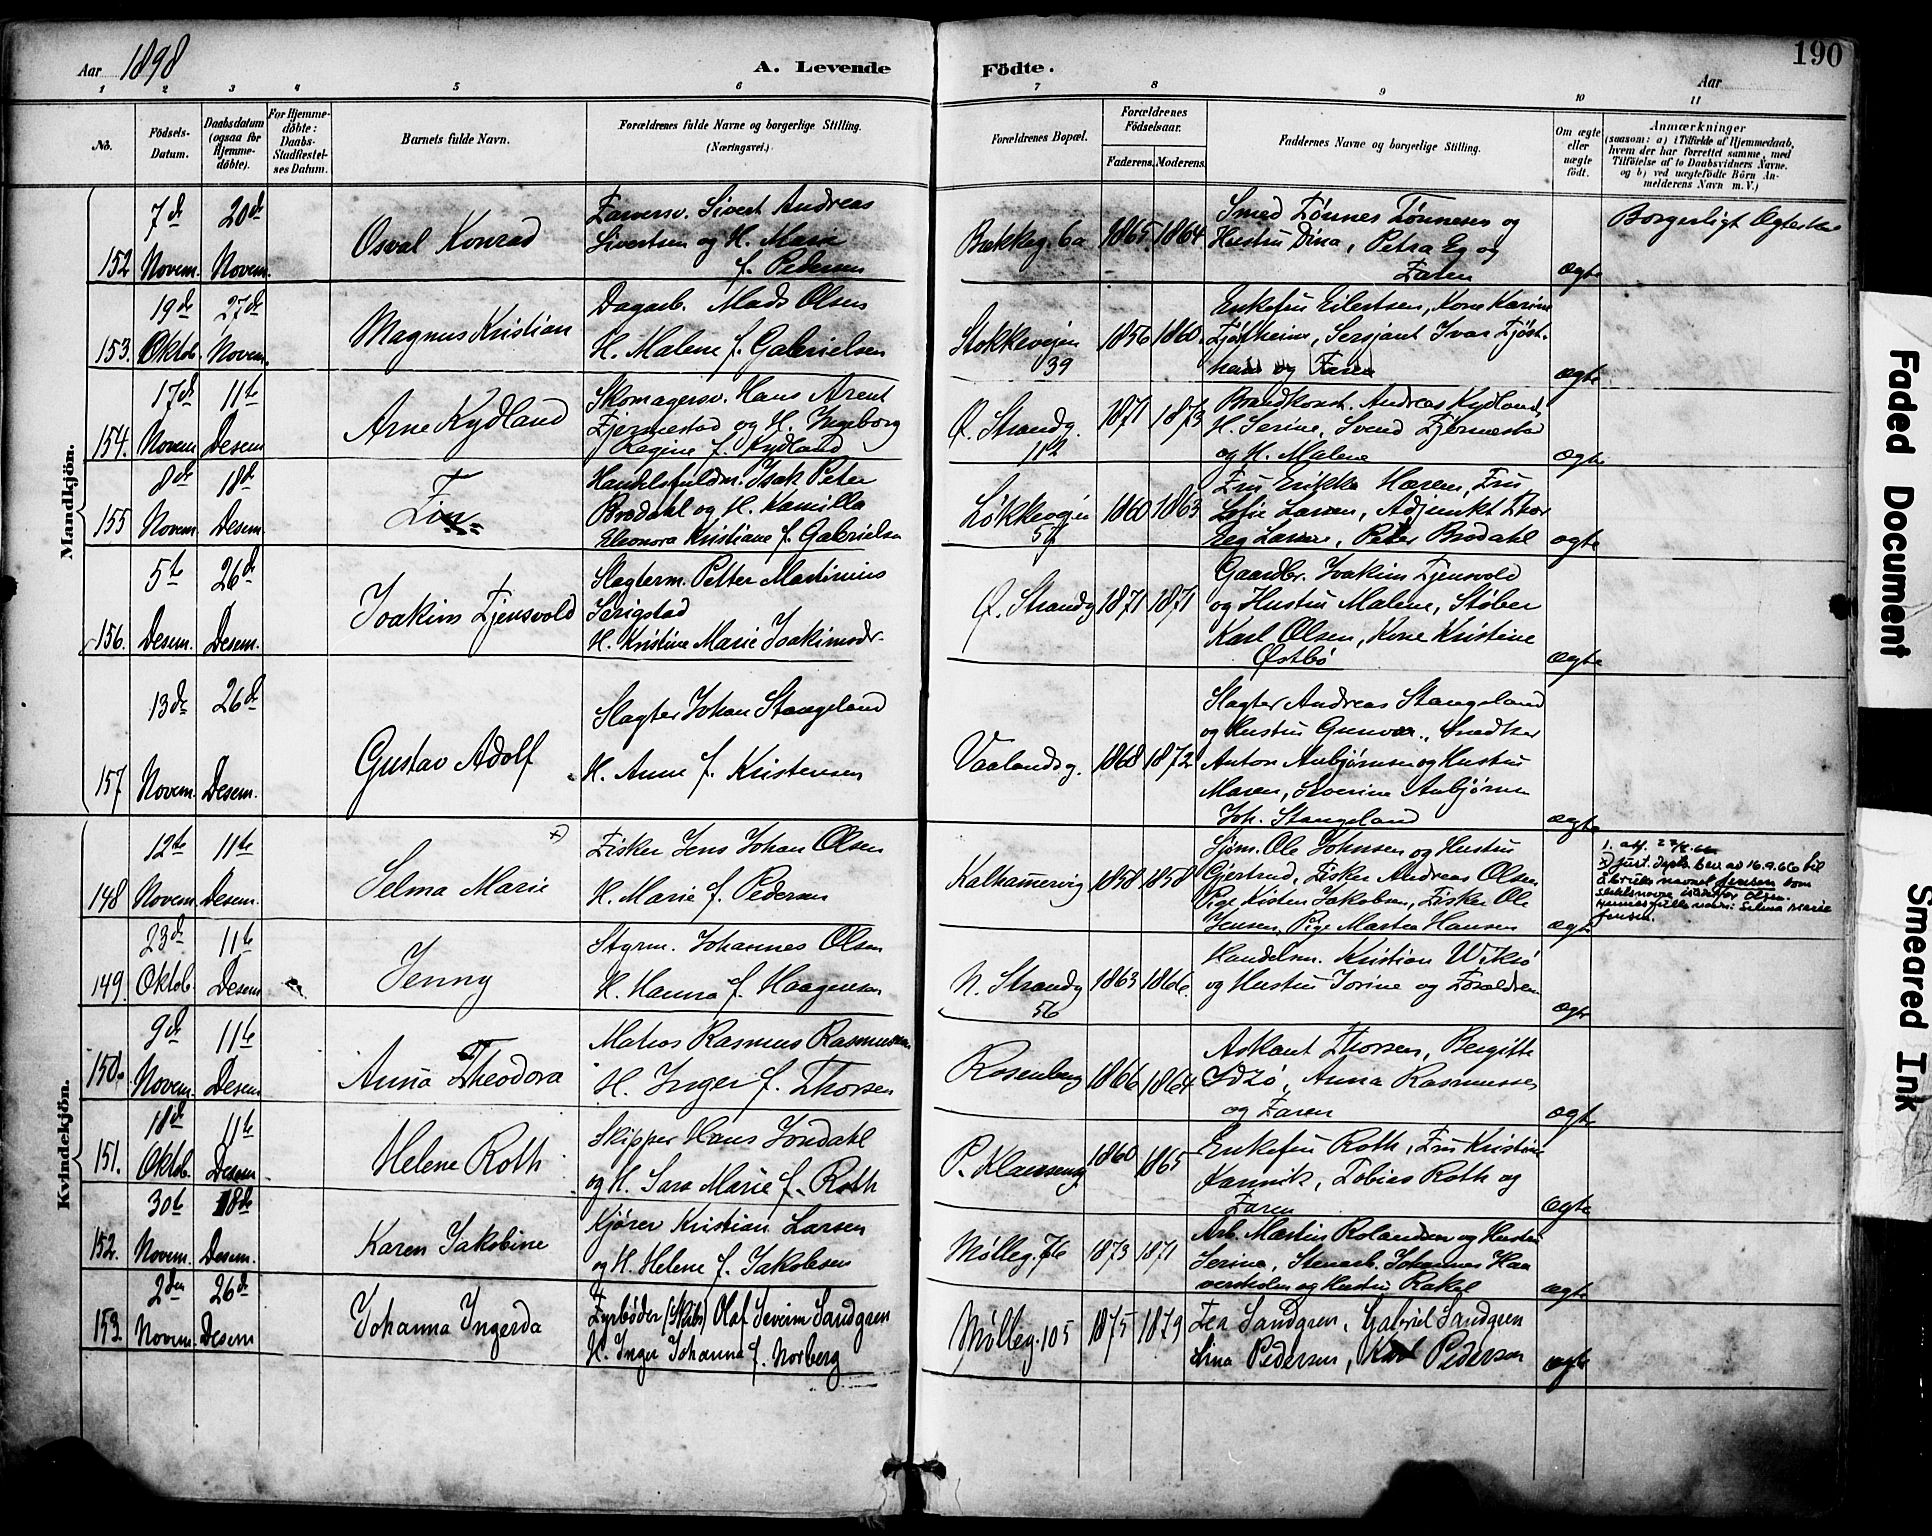 190
Aar 1898
A. Levende Födte.
Aar
1 2 3 4 5 6 7 8 9 10 11
No.
Födsels-Datum.
Daabsdatum (ogsaa for Hjemme-döbte).
For Hjemme-döbte: Daabs-Stadfæstel-ses Datum.
Barnets fulde Navn.
Forældrenes fulde Navne og borgerlige Stilling.
(Næringsvei.)
Forældrenes Bopæl.
Forældrenes Födselsaar.
Faderens. Moderens.
Faddernes Navne og borgerlige Stilling.
Om ægte eller uægte födt.
Anmærkninger
(saasom: a) i Tilfælde af Hjemmedaab,
hvem der har forrettet samme, med
Tilföielse af to Daabsvidners Navne.
og b) ved uægtefödte Börn An-
melderens Navn m. V.)
Mandkjön.
152 7de Novem. 20de Novem.
Osval Konrad
Farversv. Sivert Andreas
Sivertsen og H. Marie
f. Pedersen
Bakkeg. 6a 1865 1864
Smed Tønnes Tønnesen og
Hustru Dina, Petra Eg og
Faren
ægte
Borgerligt
153. 19de Oktob. 27de Novem.
Magnus Kristian
Dagarb. Mads Olsen
H. Malene f. Gabrielsen
Stokkevejen
39
1856 1860
Enkefru Eilertsen, Kone Karine
Fjøtheim, Sersjant Ivar Fjøt-
heim og Faren
ægte
154. 17de Novem 11te Desem
Arne Kydland
Skomagersv. Hans Arent
Fjermestad og H. Ingeborg
Regine f. Kydland
Ø. Strandg.
112
1871 1873
Brandkonst. Andreas Kydland,
H. Serine, Svend Fjermestad
og H. Malene
ægte
155 8de Novem. 18de Desem.
Fin
Handelsfuldm. Isak Peter
Brodahl og H. Kamilla
Eleonora Kristiane f. Gabrielsen
Løkkevejen
57
1860 1863
Fru Erikka Haren, Fru
Sofie Larsen, Adjunkt Thor
Eeg Larsen, Peter Brodahl
ægte
156. 5te Desem. 26de Desem.
Joakim Fjensvold
Slagterm. Petter Martinius
Sørigstad
H. Kristine Marie Joakimsdr.
Ø. Strandg 1871 1871
Gaardbr. Joakim Fjensvold
og Hustru Malene, Støber
Karl Olsen, Kone Kristine
Østbø
ægte
157 13de Novem. 26de Desem.
Gustav Adolf
Slagter Johan Stangeland
H. Anne f. Kristensen
Vaalandsg. 1868 1872
Slagter Andreas Stangeland
og Hustru Gunvor, Snedker
Anton Anbjørnsen og Hustru
Maren, Severine Anbjørnsen
Joh. Stangeland
ægte
Kvindekjön.
148 12te Novem 11te Desem.
Selma Marie x)
Fisker Jens Johan Olsen
H. Marie f. Pedersen
Kalhammervig 1858 1858
Sjøm. Ole Johnsen og Hustru
Gjertrud, Fisker Andreas Olsen
Pige Kisten Jakobsen, Fisker Ole
Jensen, Pige Martea Hansen
ægte
x) Just. dept. bev. av 16.9.66 til
å bruke navnet Jensen som
slektsnavn istedenfor Olsen.
Hennes fulle navn: Selma Marie
Jensen.
149. 23de Oktob. 11te Desem
Jenny
Styrm. Johannes Olsen
H. Hanna f. Haagensen
N. Strandg
56
1863 1866.
Handelsm. Kristian Wiksø
og Hustru Jorine og Forældren
ægte
150. 9de Novem. 11te Desem.
Anna Theodora
Matros Rasmus Rasmussen
H. Inger f. Thorsen
Rosenberg 1866 1864
Askaut Thorsen, Bergitte
Idsø, Anna Rasmussen
og Faren
ægte
151. 18de Oktob. 11te Desem.
Helene Roth
Skipper Hans Jondahl
og H. Sara Marie f. Roth
P. Klausensg 1860 1865
Enkefru Roth, Fru Kristine
Jannik, Tobias Roth og
Faren
ægte
152. 30te Novem. 18de Desem.
Karen Jakobine
Kjører Kristian Larsen
og H. Helene f. Jakobsen
Mølleg. 76 1873 1871
Arb. Martin Rolandsen og Hustru
Serine, Stenarb. Johannes Haa
versholm og Hustru Rakel
ægte
153. 2den Novem. 26de Desem
Johanna Ingerda
Fyrbøder (Skibs) Olaf Severin Sandgren
H. Inger Johanna f. Norberg
Mølleg. 105 1875 1879
Tea Sandgren, Gabriel Sandgren
Sina Pedersen, Karl Pedersen
ægte
Faded Document
Smeared Ink